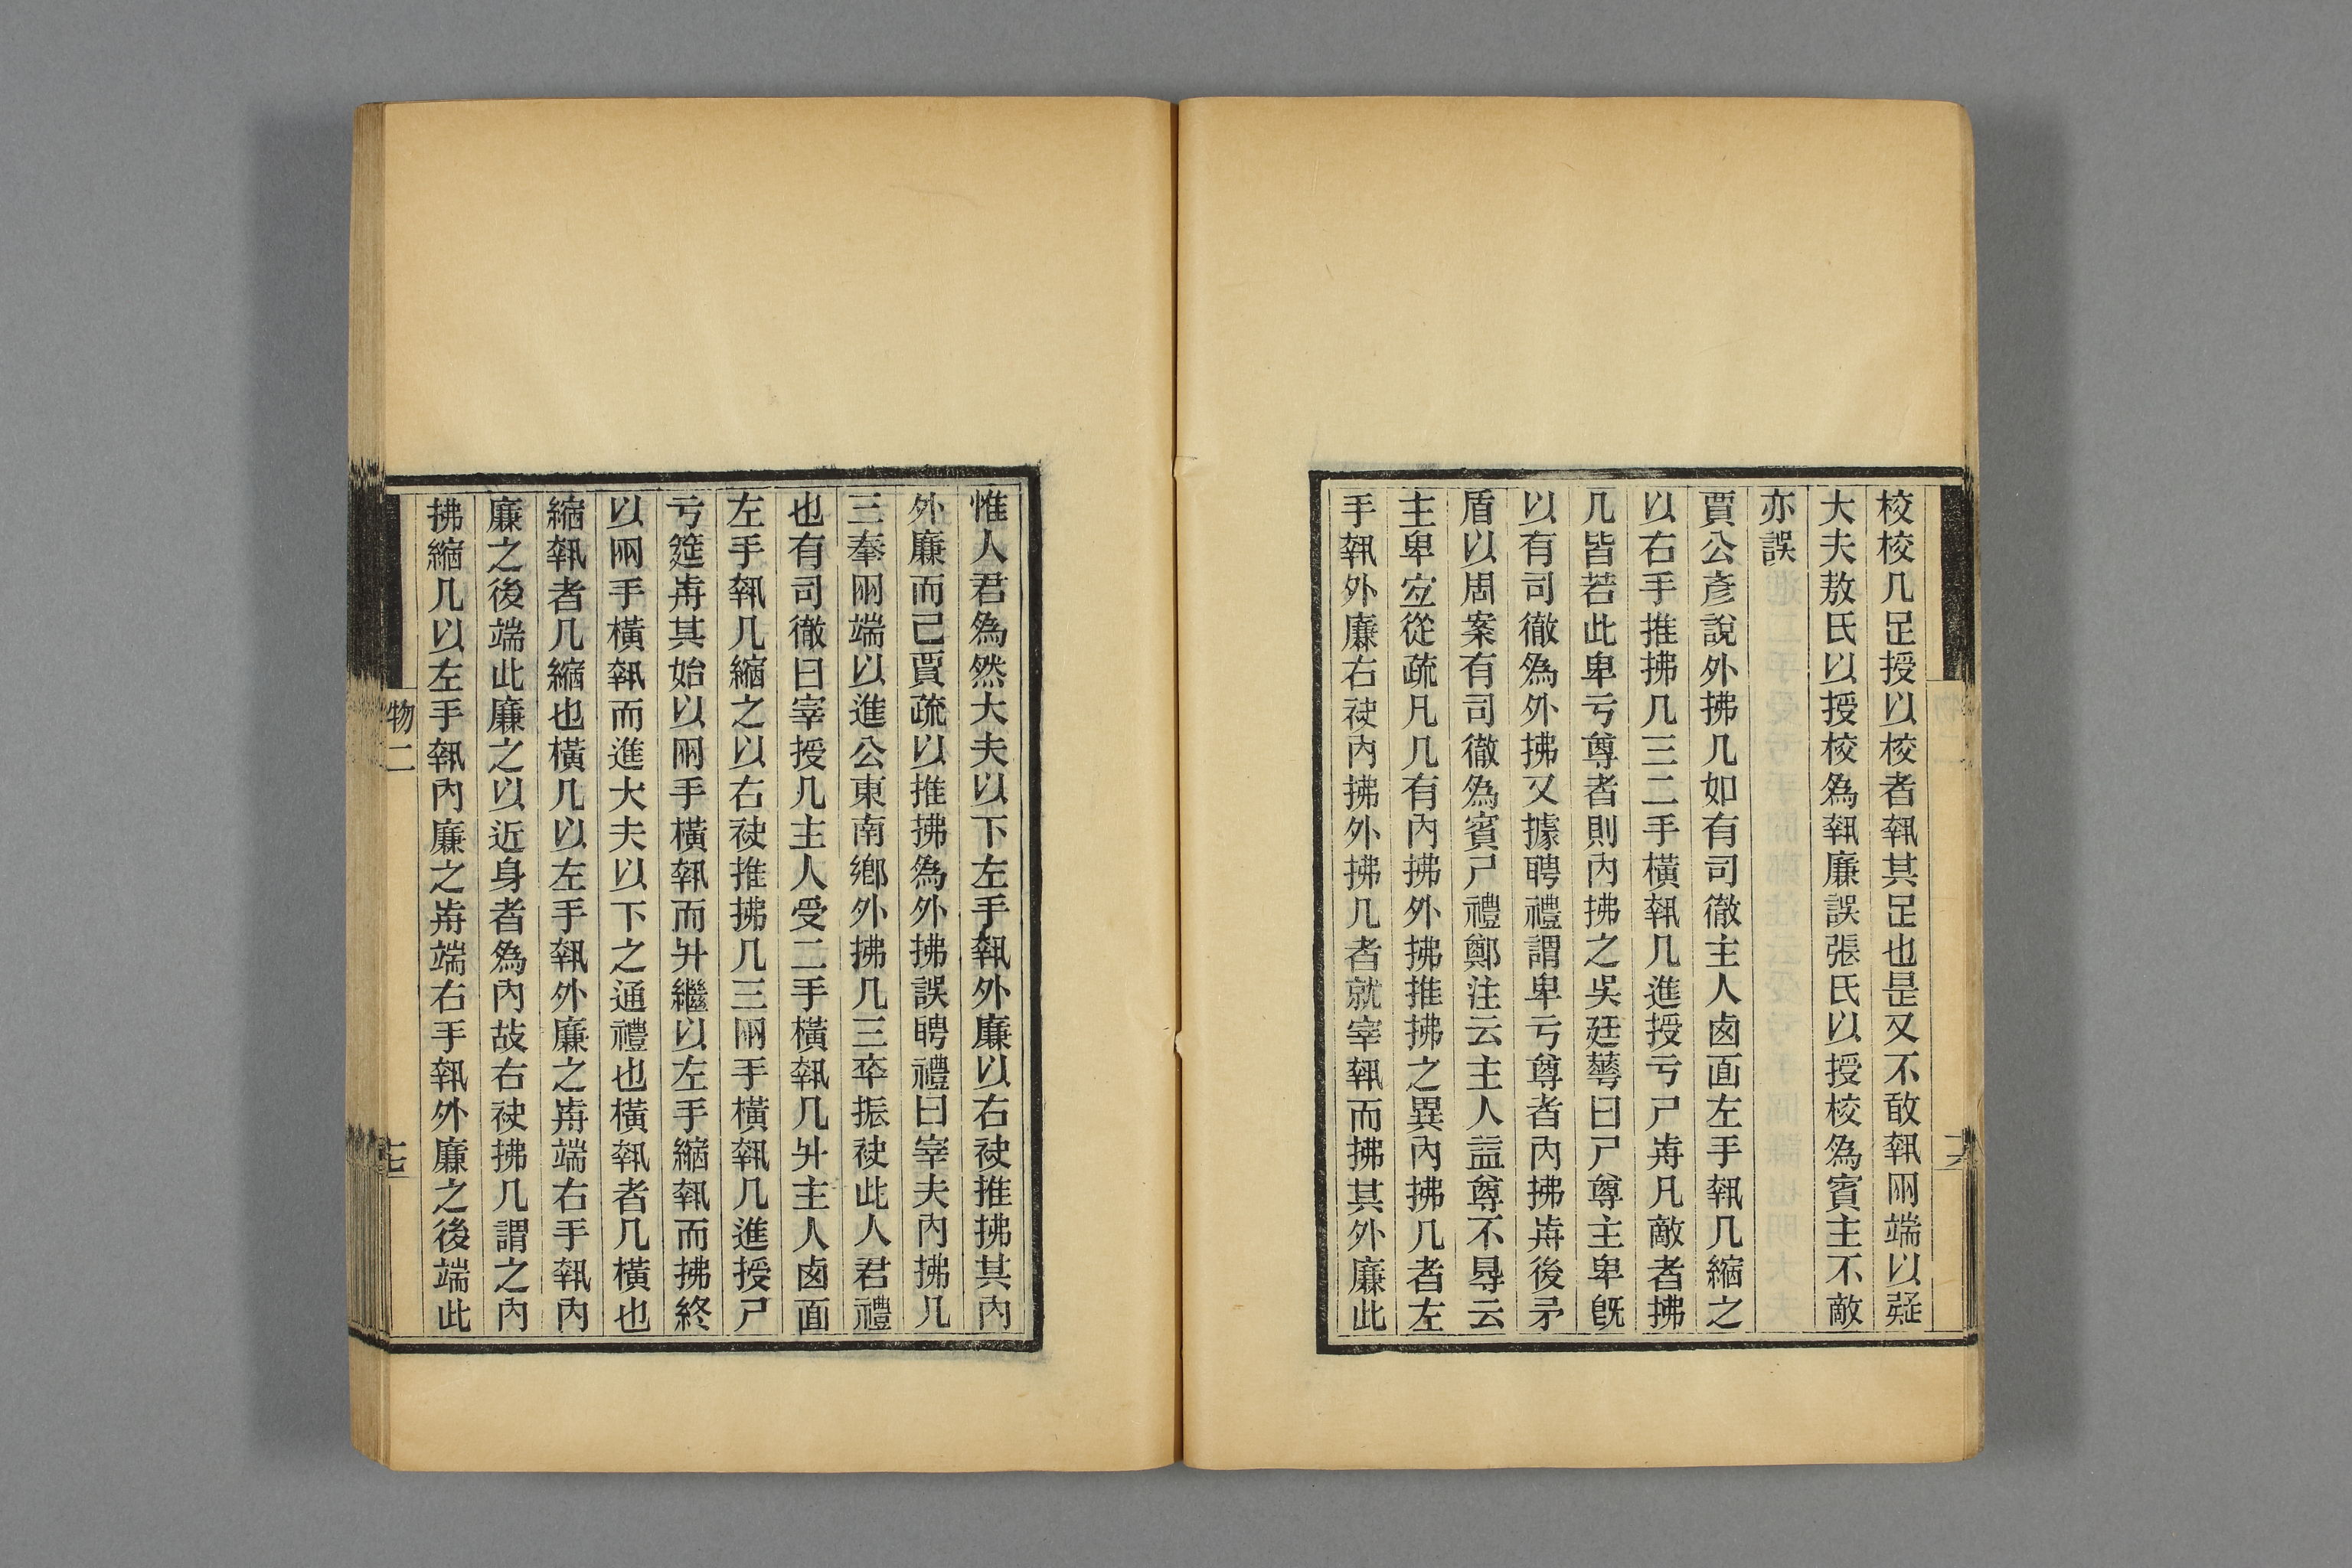 校校几足授以校者執其足也是又不敢執兩端以疑
大夫敖氏以授校為執廉誤張氏以授校為賓主不敵
亦誤
賈公彥說外拂几如有司徹主人卤面左手執几縮之
以右手推拂几三二手橫執几進授亏尸歬凡敵者拂
几皆若此卑亏尊者則內拂之吳廷蕚曰尸尊主卑旣
以有司徹為外拂又據聘禮謂卑亏尊者內拂歬後矛
盾以周案有司徹為賓尸禮鄭注云主人益尊不㝵云
主卑宐從疏凡几有內拂外拂推拂之異內拂几者左
手執外廉右袂內拂外拂几者就宰執而拂其外廉此
惟人君為然大夫以下左手執外廉以右袂推拂其內
外廉而已賈疏以推拂為外拂誤聘禮曰宰夫內拂几
三奉兩端以進公東南鄉外拂几三卒振袂此人君禮
也有司徹曰宰授几主人受二手橫執几升主人卤面
左手執几縮之以右袂推拂几三兩手橫執几進授尸
亏筵歬其始以兩手橫執而升繼以左手縮執而拂終
以兩手橫執而進大夫以下之通禮也橫執者几橫也
縮執者几縮也橫几以左手執外廉之歬端右手執內
廉之後端此廉之以近身者為內故右袂拂几謂之內
拂縮几以左手執內廉之歬端右手執外廉之後端此
物二
十七